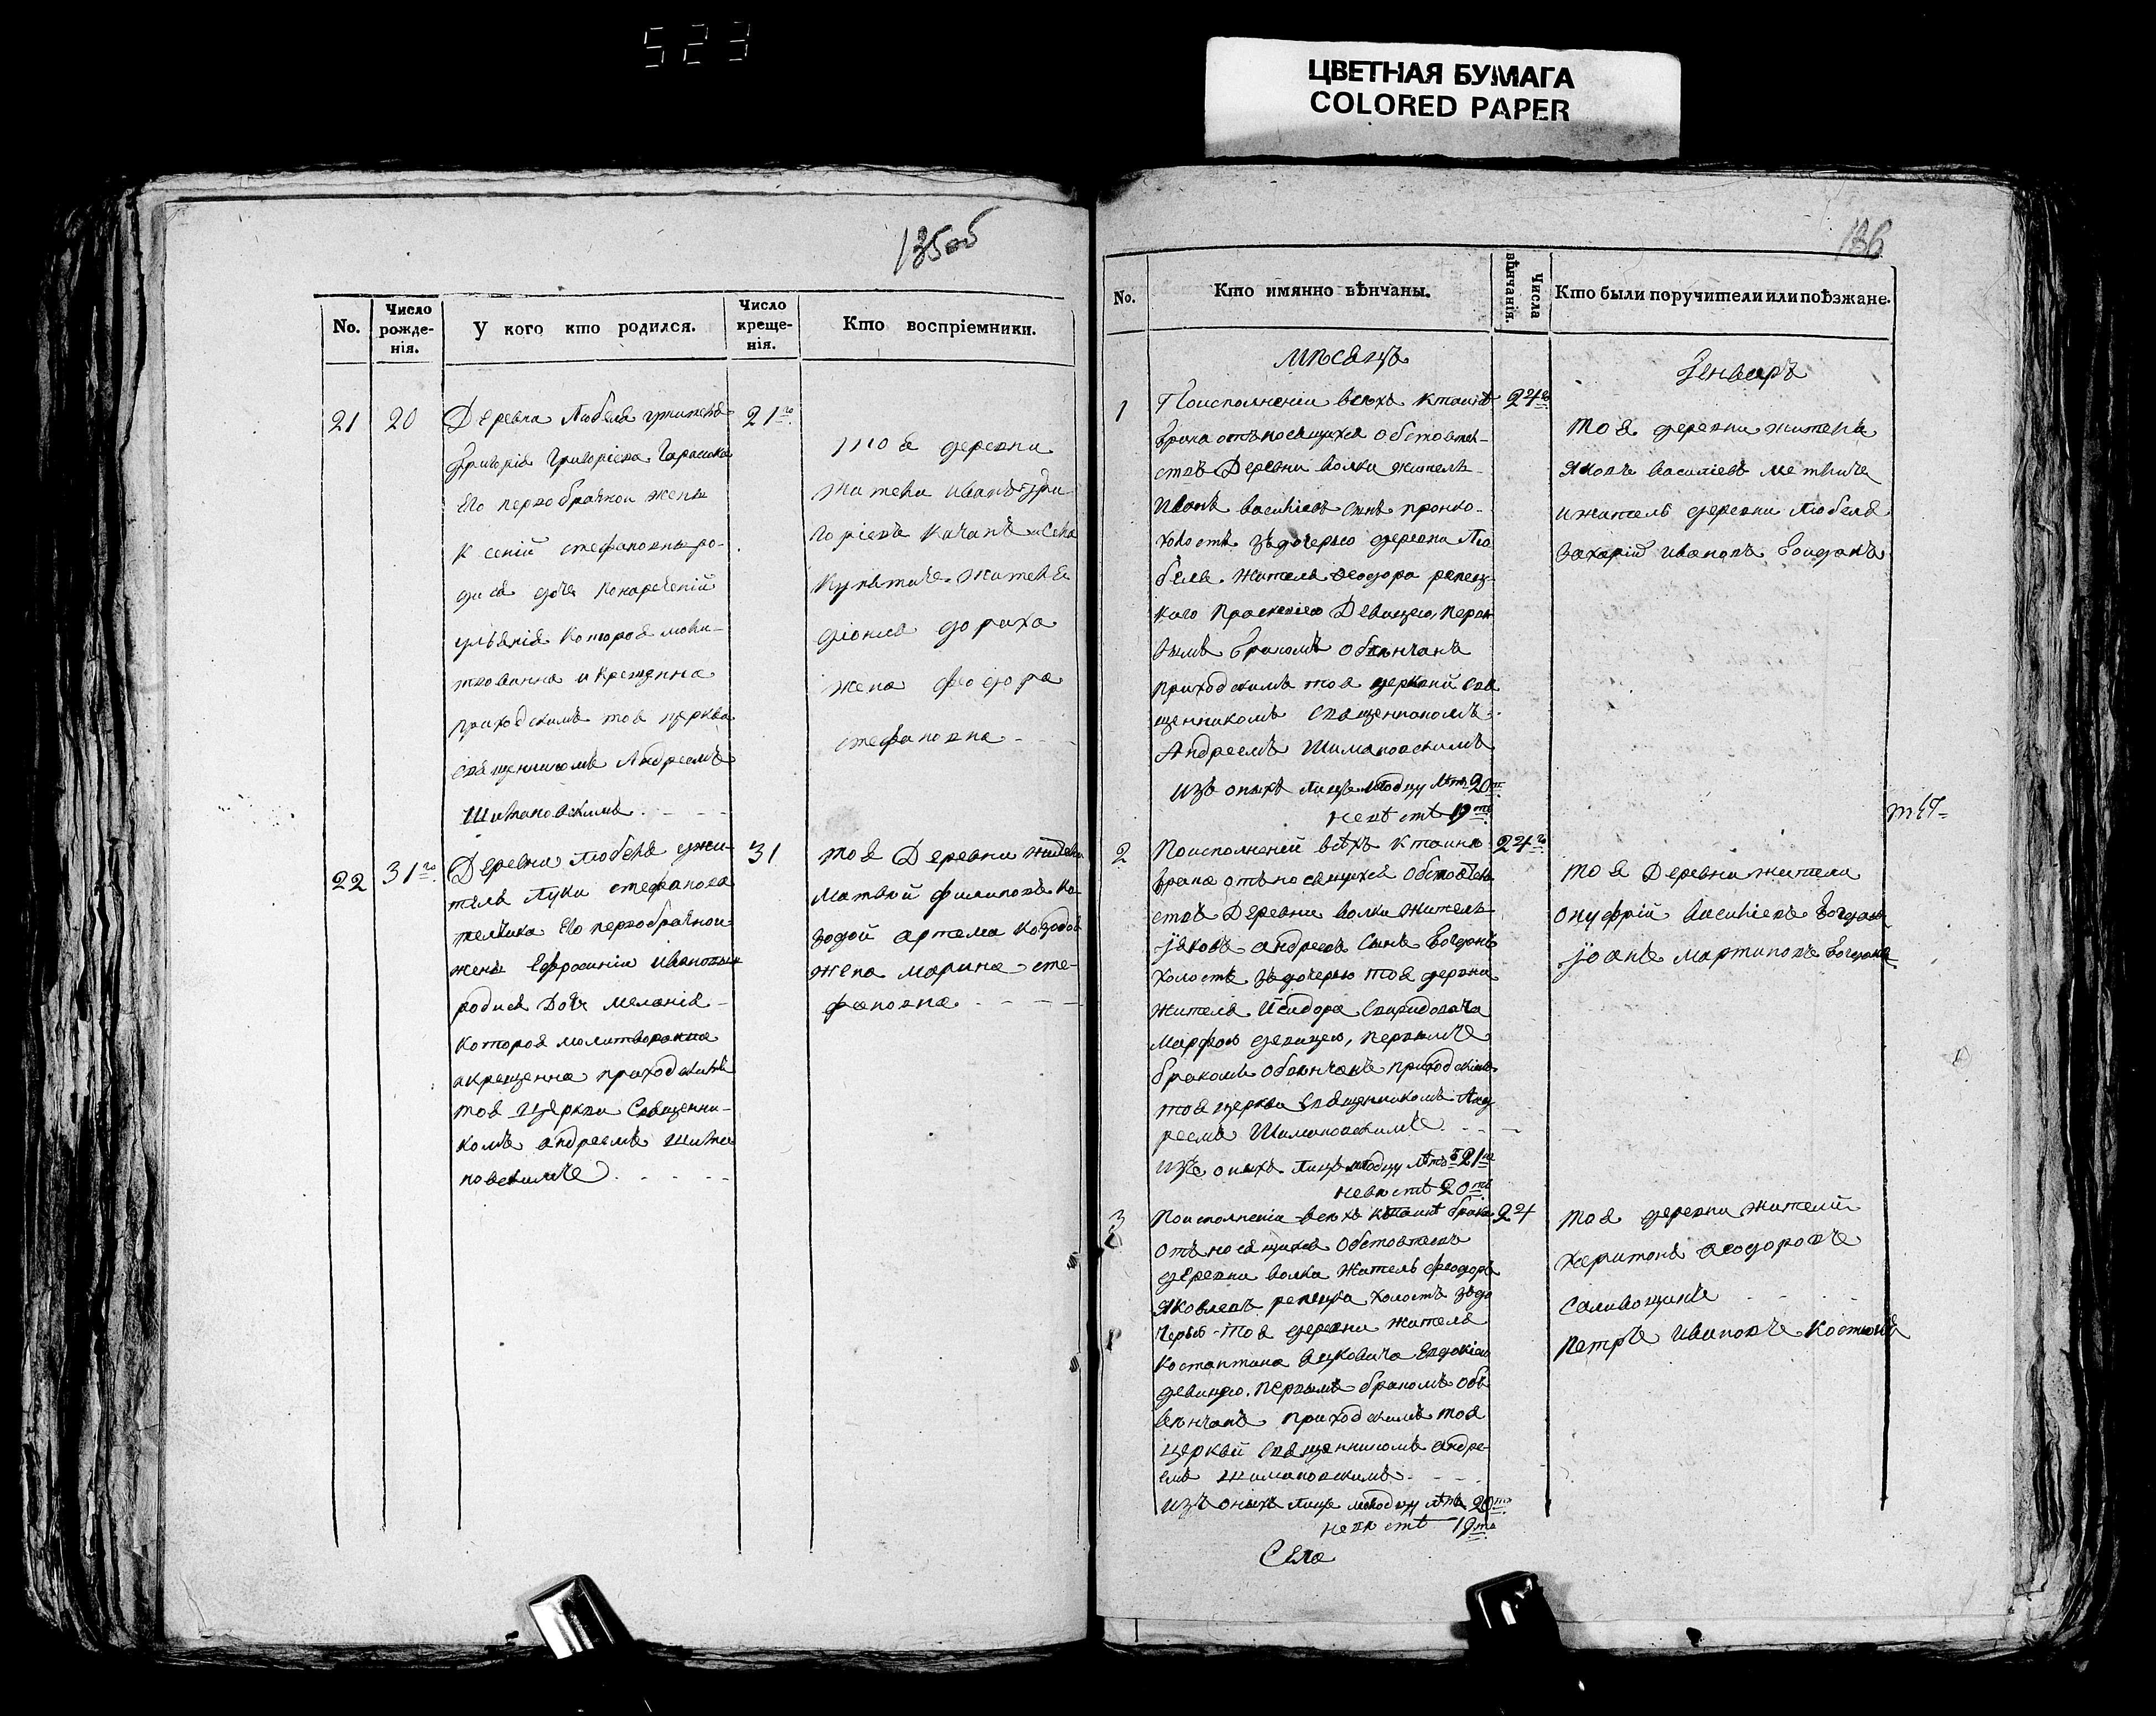 523
ЦВЕТНАЯ БУМАГА
COLORED PAPER
135об
No.
Число рожде-нія.
У кого кто родился.
Число креще-нія.
Кто воспріемники.
21
20
Деревна Любеля жителя
Григорія Григоріева
Его первобрачной жены
Ксеній стефановны ро-
дися дочь нонареченій
уліянія которая моли-
твованна и крещенна
приходскимъ тоя церкви
священникомъ Андреемъ
Шимановскимъ
21го
тоя деревни
жители иванъ гри
горіевъ качанъ
жителя
діонися дораха
жена феодора
стефановна
22
31го
Деревни Любеля жи-
теля Луки стефанова
Его первобрачной
жены Ефросиніи ивановны
родися Дочь меланія
которая молитворанна
акрещенна приходскимъ
тоя Церкви Священни-
комъ андреемъ шима
новскимъ
31
тоя Деревни жители
матвей филиповъ ко
зодой артема козодоя
жена марина сте-
фановна
136
No.
Кто имянно вѣнчаны.
Числа вѣнчанія.
Кто были поручители или поѣзжане.
мѣсяцъ
Генваръ
1
Поисполненіи всѣхъ ктаинѣ
брака относящихся обстоятел-
ствъ Деревни волки жителъ
Иванъ василіевъ сынъ пронко-
холостъ здочерью деревни Лю
беля жителя Феодора репец-
каго Праскевіею Девицею, перв
вымъ бракомъ обвѣнчанъ
приходскимъ тоя церквй свя
щенникомъ Священникомъ
Андреемъ Шимановскимъ
изъ оныхъ лицъ молодцу лѣтъ 20ть
невѣстѣ 19ть
24го
тоя деревни жители
Яковъ василіевъ
ижитель деревни Любеля
захарій ивановъ богданъ
2
Поисполненій всѣхъ ктаинѣ
брака относящихся обстоятел
ствъ Деревни волки жителъ
Іяковъ андреевъ сынъ богданъ
холостъ здочерью тоя деревни
жителя Исидора Свиридовича
Марфою девицею, первымъ
бракомъ обвѣнчанъ приходскимъ
тоя церкви священникомъ Анд
реемъ Шимановскимъ
изъ оныхъ лицъ молодцу лѣтъ 21
невѣстѣ 20ть
24го
тоя Деревни жители
онуфрій василіевъ богданъ
Іоанъ мартиновъ богданъ
3
Поисполненіи всѣхъ ктаинѣ брака
относящихся обстоятелъ
деревни волки житель феодоръ
Яковлевъ репецка холостъ здо
черью тоя деревни жителя
костантина вецковича Евдокіею
девицею, первымъ бракомъ обв
вѣнчанъ приходскимъ тоя
церквй священникомъ андре-
емъ шимановскимъ
изъ оныхъ лицъ молодцу лѣтъ 20ть
невѣстѣ 19ть
24
тоя деревни жителй
харитонъ феодоровъ
Петръ ивановъ
Села